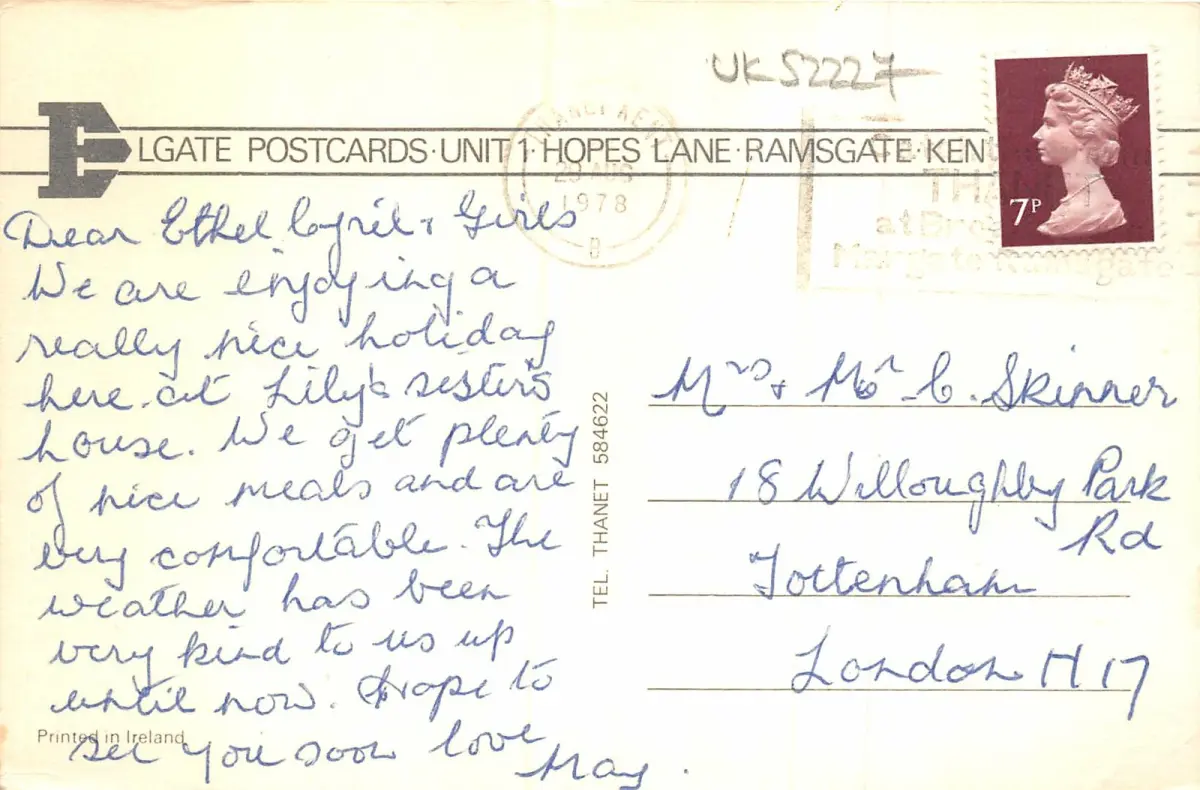 UK 52227
ELGATE POSTCARDS·UNIT 1·HOPES LANE·RAMSGATE·KEN
THANET KENT
29 AUG
1978
B
THANET
at Bro
Margate Ramsgate
7P
Dear Ethel Cyril & Girls
We are enjoying a
really nice holiday
here at Lily's sister's
house. We get plenty
of nice meals and are
very comfortable. The
weather has been
very kind to us up
until now. Hope to
see you soon love
May.
Printed in Ireland
TEL. THANET 584622
Mrs & Mr C. Skinner
18 Willoughby Park
Rd
Tottenham
London N 17